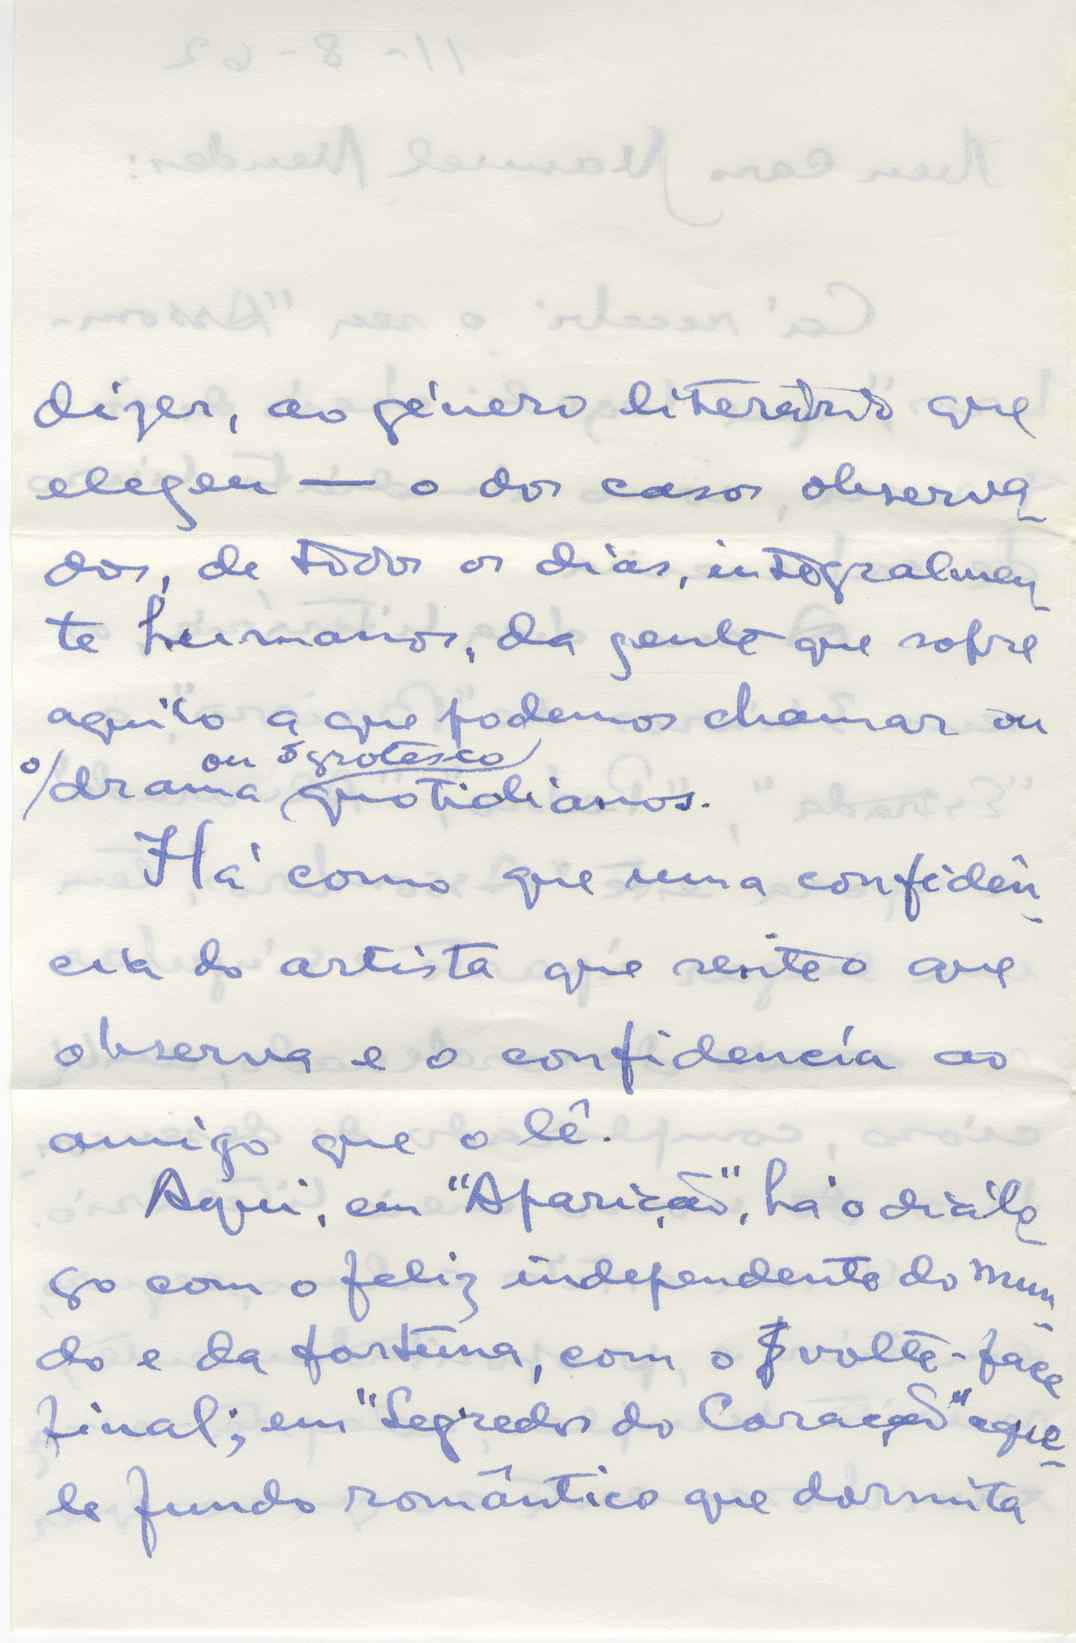 dizer, ao género literário que
elegeu — o dos casos observa-
dos, de todos os dias, integralmen-
te humanos, da gente que sofre
aquilo a que podemos chamar ou
o/ drama ou o grotesco quotidianos.
Há como que uma confidên-
cia do artista que sente o que
observa e o confidencía ao
amigo que o lê.
Aqui, em "Aparição", há o diálo-
go com o feliz independente do mun-
do e da fortuna, com o volte-face
final; em "Segredos do Coração" aque-
le fundo romântico que dormita